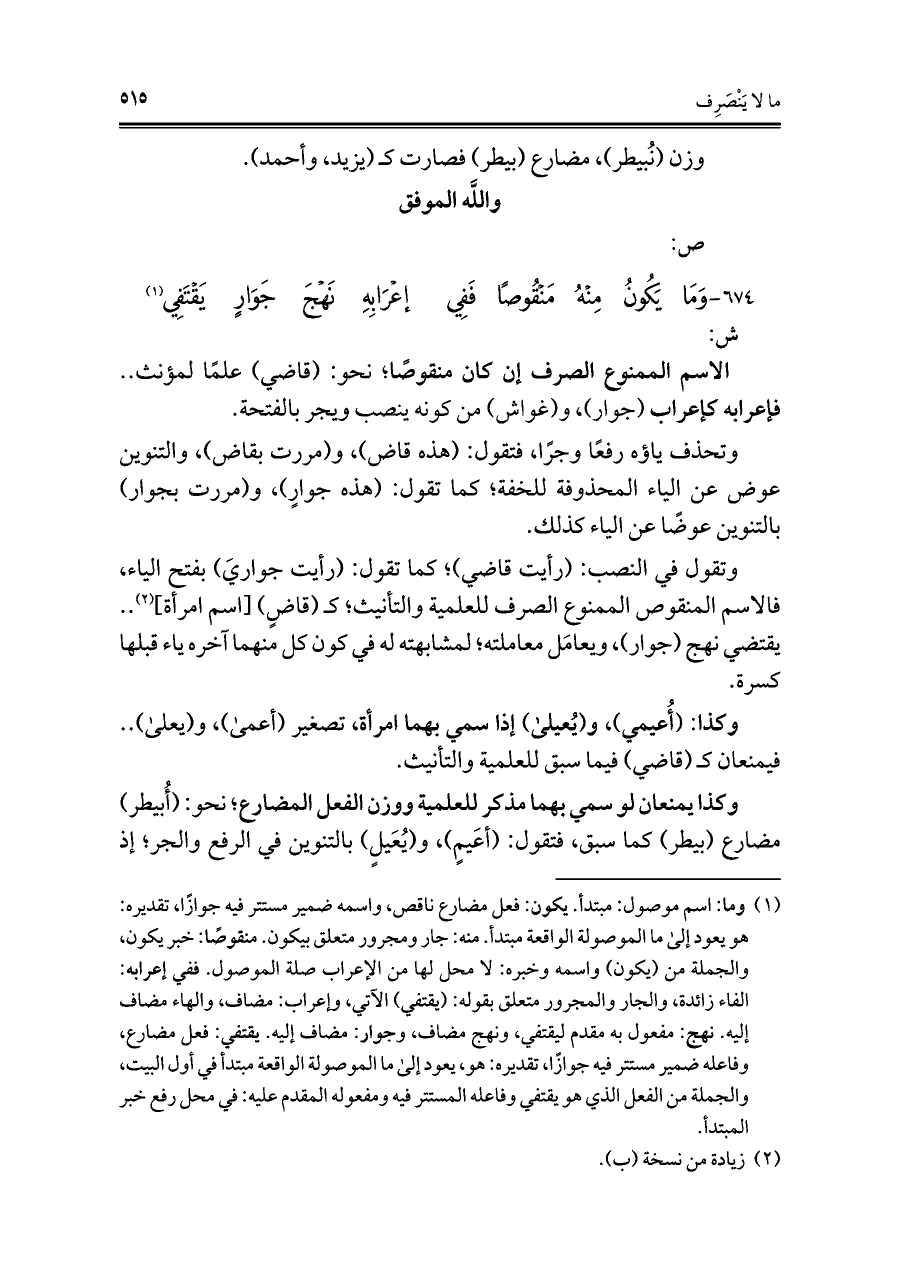 ما لا يَنْصَرِف ٥١٥
وزن (نُبيطر)، مضارع (بيطر) فصارت كـ (يزيد، وأحمد).
واللَّه الموفق
ص:
٦٧٤-وَمَا يَكُونُ مِنْهُ مَنْقُوصًا فَفِي إعْرَابِهِ نَهْجَ جَوَارٍ يَقْتَفِي(١)
ش:
الاسم الممنوع الصرف إن كان منقوصًا؛ نحو: (قاضي) علمًا لمؤنث..
فإعرابه كإعراب (جوار)، و(غواش) من كونه ينصب ويجر بالفتحة.
وتحذف ياؤه رفعًا وجرًا، فتقول: (هذه قاض)، و(مررت بقاض)، والتنوين
عوض عن الياء المحذوفة للخفة؛ كما تقول: (هذه جوارٍ)، و(مررت بجوار)
بالتنوين عوضًا عن الياء كذلك.
وتقول في النصب: (رأيت قاضي)؛ كما تقول: (رأيت جواريَ) بفتح الياء،
فالاسم المنقوص الممنوع الصرف للعلمية والتأنيث؛ كـ (قاضٍ) [اسم امرأة](٢)..
يقتضي نهج (جوار)، ويعامَل معاملته؛ لمشابهته له في كون كل منهما آخره ياء قبلها
كسرة.
وكذا: (أُعيمي)، و(يُعيلىٰ) إذا سمي بهما امرأة، تصغير (أعمىٰ)، و(يعلىٰ)..
فيمنعان كـ (قاضي) فيما سبق للعلمية والتأنيث.
وكذا يمنعان لو سمي بهما مذكر للعلمية ووزن الفعل المضارع؛ نحو: (أُبيطر)
مضارع (بيطر) كما سبق، فتقول: (أعَيمٍ)، و(يُعَيلٍ) بالتنوين في الرفع والجر؛ إذ
(١) وما: اسم موصول: مبتدأ. يكون: فعل مضارع ناقص، واسمه ضمير مستتر فيه جوازًا، تقديره:
هو يعود إلىٰ ما الموصولة الواقعة مبتدأ. منه: جار ومجرور متعلق بيكون. منقوصًا: خبر يكون،
والجملة من (يكون) واسمه وخبره: لا محل لها من الإعراب صلة الموصول. ففي إعرابه:
الفاء زائدة، والجار والمجرور متعلق بقوله: (يقتفي) الآتي، وإعراب: مضاف، والهاء مضاف
إليه. نهج: مفعول به مقدم ليقتفي، ونهج مضاف، وجوار: مضاف إليه. يقتفي: فعل مضارع،
وفاعله ضمير مستتر فيه جوازًا، تقديره: هو، يعود إلىٰ ما الموصولة الواقعة مبتدأ في أول البيت،
والجملة من الفعل الذي هو يقتفي وفاعله المستتر فيه ومفعوله المقدم عليه: في محل رفع خبر
المبتدأ.
(٢) زيادة من نسخة (ب).